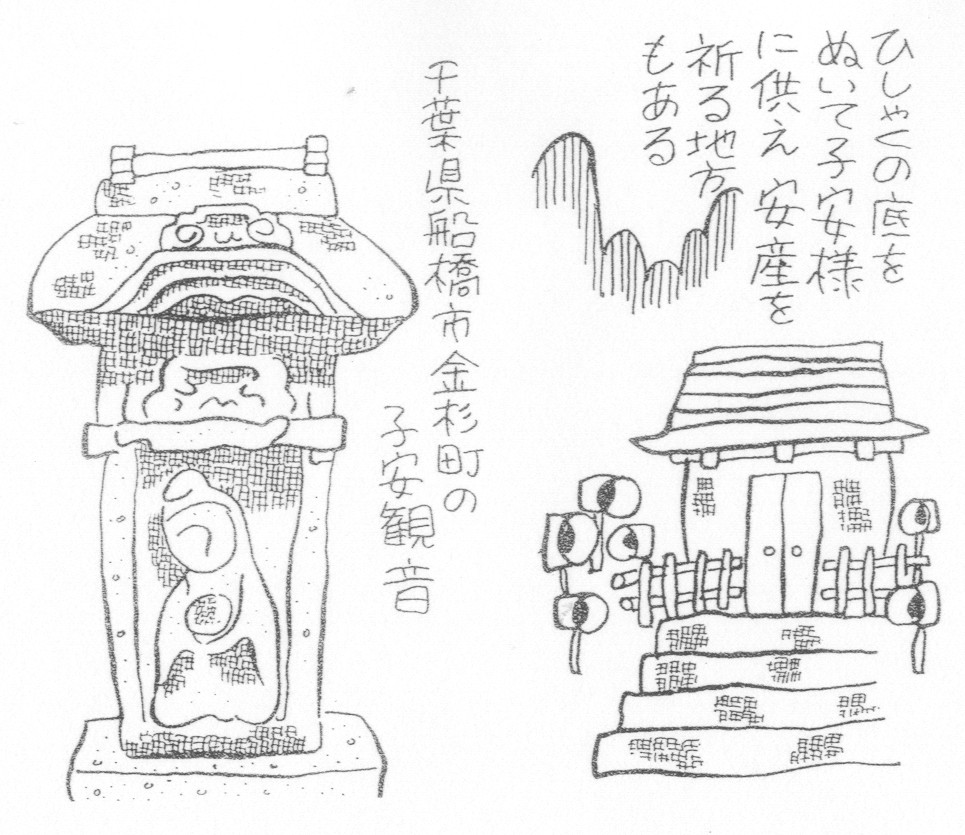 ひしゃくの底を
ぬいて子安様
に供え安産を
祈る地方
もある
千葉県船橋市金杉町の
子安観音